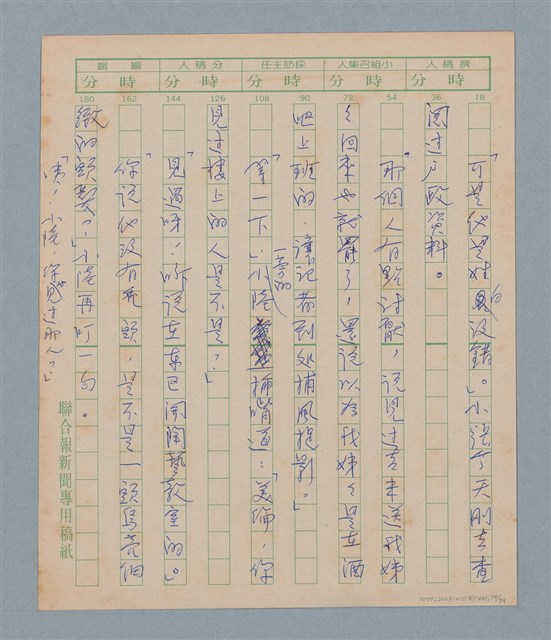 撰稿人 小組召集人 採訪主任 分稿人 編輯
時 分 時 分 時 分 時 分 時 分
18 36 54 72 90 108 126 144 162 180
「可是他是姓白沒錯。」小張今天剛去查
閱過戶政資料。
「那個人有點討厭，說見過去來送我姊
々回來也就算了，還說以為我姊々是在酒
吧上班的，讓記者到處捕風捉影。」
「等一下，」小陸一旁的插嘴道：「美瑜，你
見過樓上的人是不是？」
「見過呀！昨說在東巳開陶藝教室的。」
「你說他沒有禿頭，是不是一頭烏亮細
緻的頭髮？」小陸再叮一句。
「咦，小陸，你見過那人？」
聯合報新聞專用稿紙